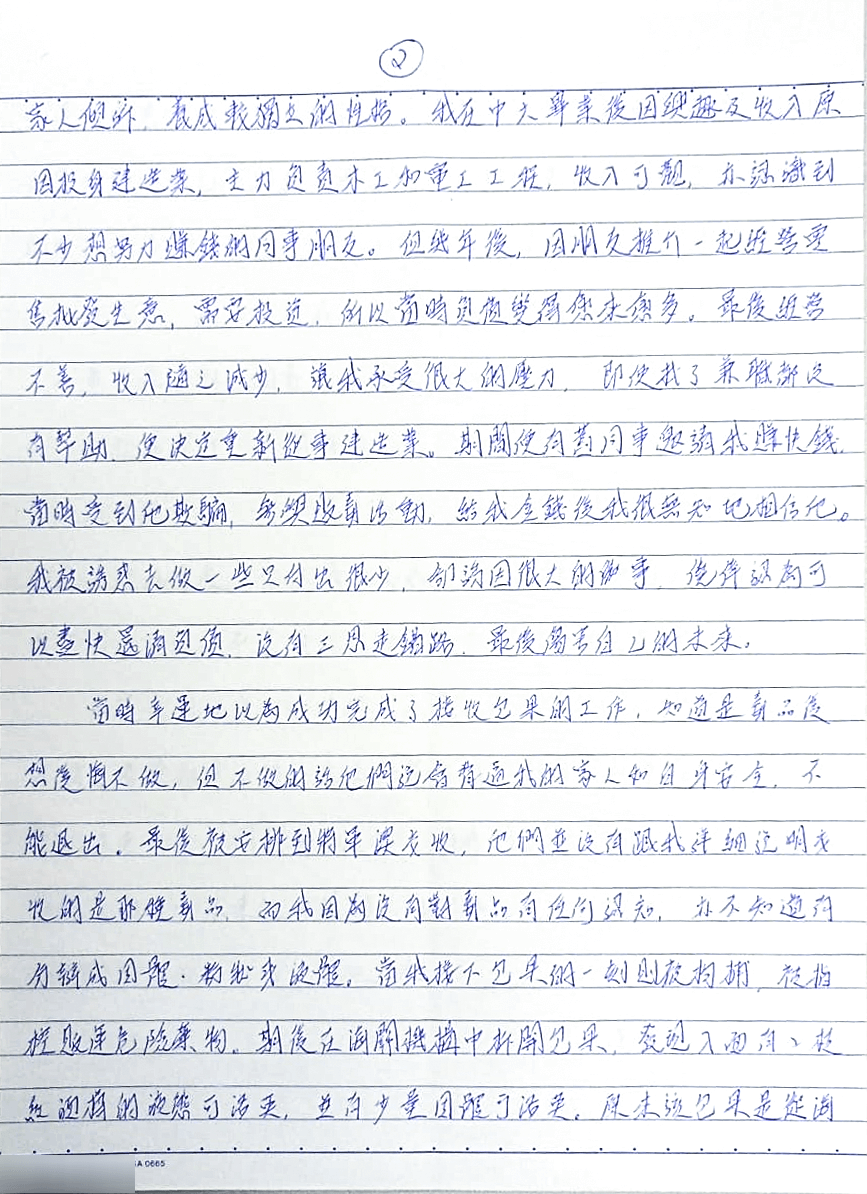 ②
家人傾訴，養成較獨立的性格。我在中大畢業後因興趣及收入原
因投身建造業，主力負責木工和電工工程，收入可觀，亦認識到
不少想努力賺錢的同事朋友。但幾年後，因朋友推介一起經營零
售批發生意，需要投資，所以當時負債變得愈來愈多。最後經營
不善，收入隨之減少，讓我承受很大的壓力，即使找了兼職都沒
有幫助，便決定重新從事建造業。期間便有舊同事邀請我賺快錢，
當時受到他欺騙，參與販毒活動，給我金錢後我很無知地相信他。
我被誘惑去做一些只付出很少，卻誘因很大的歹事，僥倖認為可
以盡快還清負債，沒有三思走錯路，最後傷害自己的未來。
當時幸運地以為成功完成了接收包果的工作，知道是毒品後
想後悔不做，但不做的話他們說會脅逼我的家人和自身安全，不
能退出。最後被安排到將軍澳交收，他們並沒有跟我詳細說明交
收的是那種毒品，而我因為沒有對毒品有任何認知，亦不知道有
分辨成固體、粉狀或液體。當我接下包果的一刻則被拘捕，被指
控販運危險藥物。期後在海關機構中拆開包果，發現入面有2枝
紅酒樽的液態可治英，並有少量固體可治英。原本該包果是從海
GA 0665